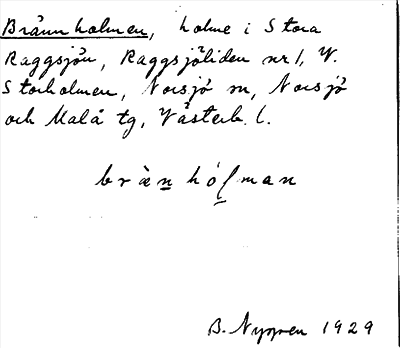 Brännholmen, holme i Stora
Raggsjön, Raggsjöliden nr 1, V.
Storholmen, Norsjö sn, Norsjö
och Malå tg, Västerb. l.
bræ̀n hól man
B. Nygren 1929